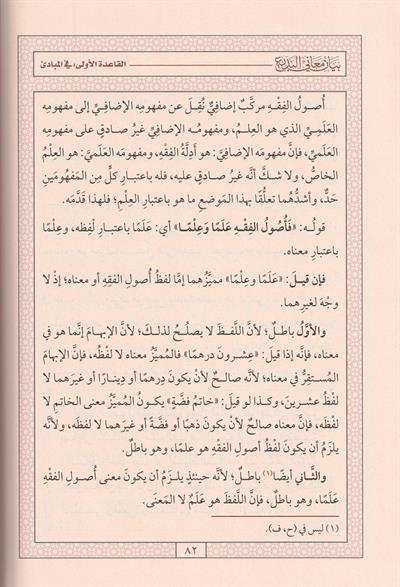 بيان معاني البديع
القاعدة الأولى: في المبادئ
أُصولُ الفِقْهِ مركَّبٌ إضافيٌّ نُقِلَ عن مفهومِه الإضافيِّ إلى مفهومِه
العَلَميِّ الذي هو العِلمُ، ومفهومُه الإضافيُّ غيرُ صادقٍ على مفهومِه
العَلَميِّ، فإنَّ مفهومَه الإضافيَّ: هو أدِلَّةُ الفِقْهِ، ومفهومَه العَلَميَّ: هو العِلْمُ
الخاصُّ، ولا شكَّ أنَّه غيرُ صادقٍ عليه، فله باعتبارِ كلٍّ مِن المَفهُومَينِ
حَدٌّ، وأشدُّهُما تعلُّقًا بهذا المَوضعِ ما هو باعتبارِ العِلْمِ؛ فلهذا قَدَّمَه.
قولُه: «فَأُصُولُ الفِقْهِ عَلَمًا وَعِلْمًا» أي: عَلَمًا باعتبارِ لَفْظِه، وعِلْمًا
باعتبارِ معناه.
فإن قيلَ: «عَلَمًا وعِلْمًا» مميَّزُهما إمَّا لفظُ أُصولِ الفقهِ أو معناه؛ إذْ لا
وجْهَ لغيرِهما.
والأوَّلُ باطلٌ؛ لأنَّ اللَّفظَ لا يَصلُحُ لذلكَ؛ لأنَّ الإبهامَ إنَّما هو في
معناه، فإنَّه إذا قيلَ: «عِشرونَ دِرهمًا» فالمُميَّزُ معناه لا لفْظُه، فإنَّ الإبهامَ
المُستقِرَّ في معناه؛ لأنَّه صالحٌ لأنْ يكونَ دِرهمًا أو دِينارًا أو غيرَهما لا
لفْظُ عشرينَ، وكذا لو قيلَ: «خاتمُ فضَّةٍ» يكونُ المُميَّزُ معنى الخاتمِ لا
لفْظَه، فإنَّ معناه صالحٌ لأنْ يكونَ ذهبًا أو فضَّةً أو غيرَهما لا لفظَه، ولأنَّه
يلزمُ أن يكونَ لفظُ أصولِ الفقهِ هو علمًا، وهو باطلٌ.
والثَّاني أيضًا(١) باطلٌ؛ لأنَّه حينئذٍ يلزمُ أن يكونَ معنى أُصولِ الفقهِ
عَلَمًا، وهو باطلٌ، فإنَّ اللَّفظَ هو عَلَمٌ لا المَعنَى.
(١) ليس في (ح، ف).
٨٢